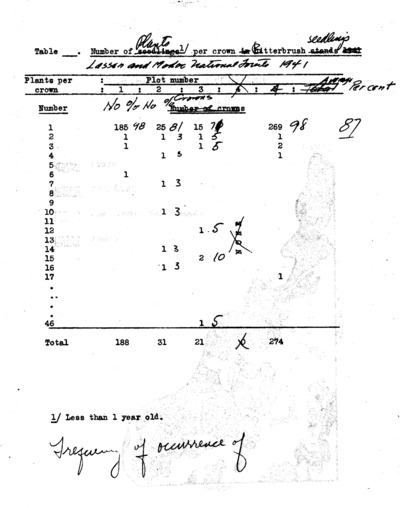 Plants seedlings
Table ___. Number of seedlings1/ per crown in Bitterbrush stands
Lassen and Modoc National Forests 1941
Plants per : Plot number Average
crown : 1 : 2 : 3 : : 4 : Total Per cent
Number No % No % Crowns
Number of crowns
1 185 98 25 81 15 71 269 98 87
2 1 1 3 1 5 1
3 1 1 5 2
4 1 5 1
5
6 1
7 1 3
8
9
10 1 3
11
12 1 5
13
14 1 3
15 2 10
16 1 3
17 1
.
.
.
.
46 1 5
Total 188 31 21 274
1/ Less than 1 year old.
Frequency of occurrence of